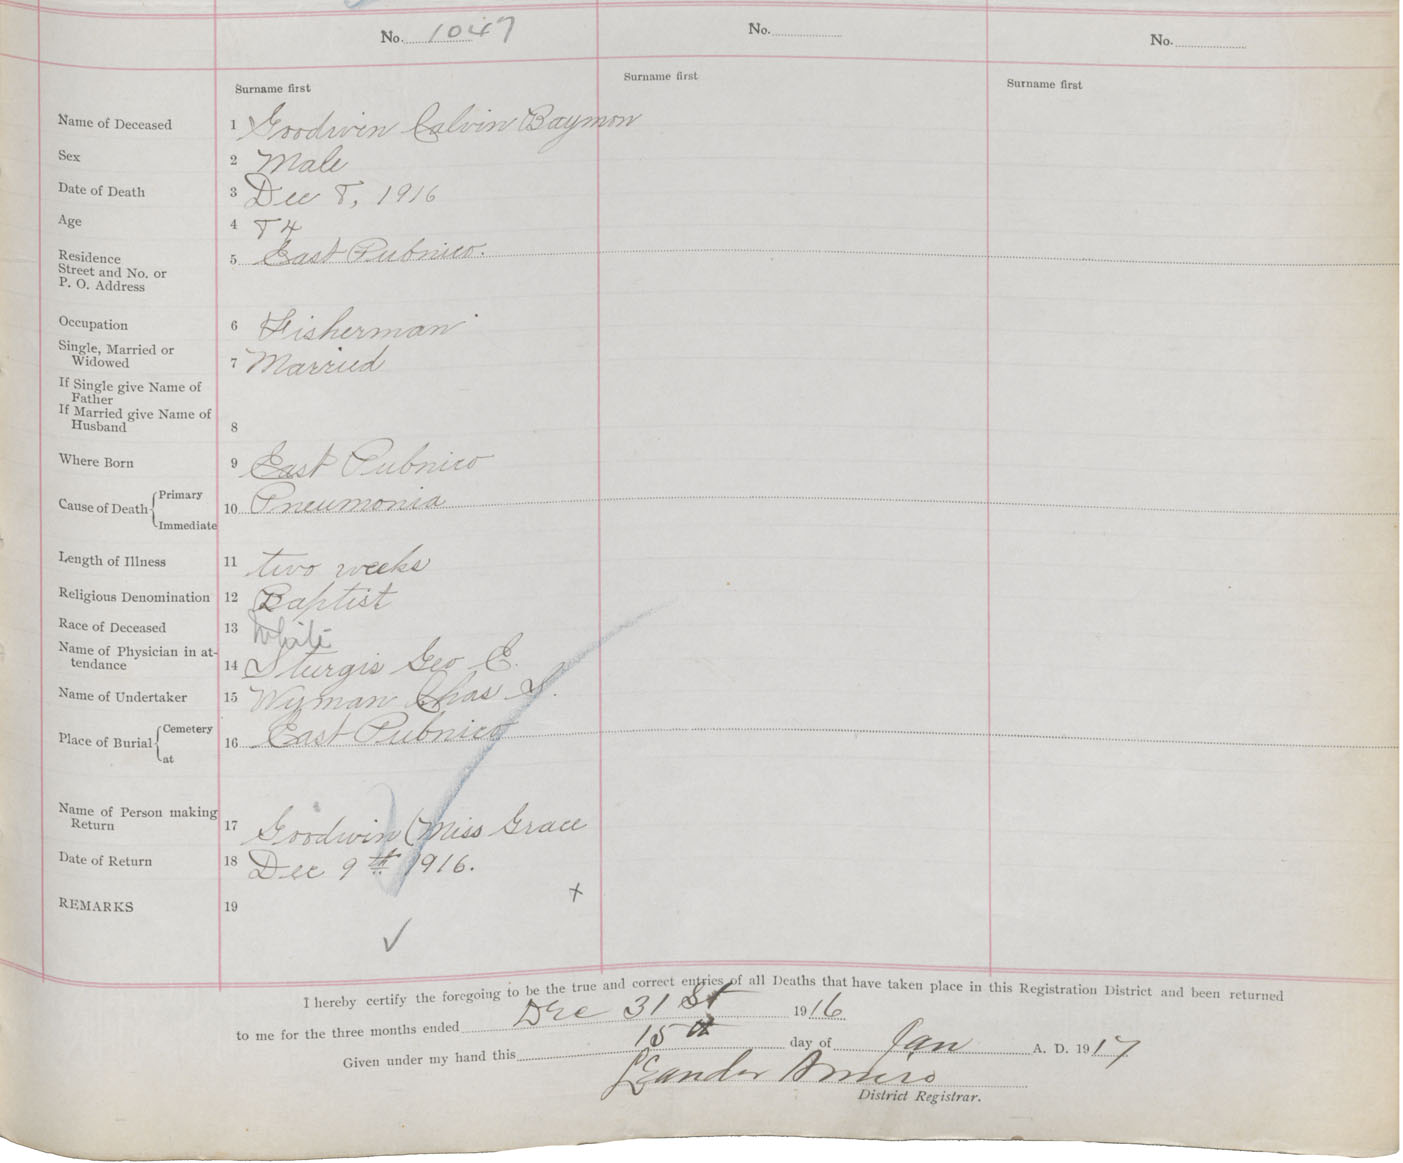 No. 1047 No. No.
Surname first Surname first Surname first
Name of Deceased 1 Goodwin Calvin Baymon
Sex 2 Male
Date of Death 3 Dec 8, 1916
Age 4 84
Residence
Street and No. or
P. O. Address 5 East Pubnico.
Occupation 6 Fisherman
Single, Married or
Widowed 7 Married
If Single give Name of
Father
If Married give Name of
Husband 8
Where Born 9 East Pubnico
Cause of Death { Primary
Immediate 10 Pneumonia
Length of Illness 11 two weeks
Religious Denomination 12 Baptist
Race of Deceased 13 White
Name of Physician in at-
tendance 14 Sturgis Geo E.
Name of Undertaker 15 Wyman Chas S.
Place of Burial { Cemetery
at 16 East Pubnico
Name of Person making
Return 17 Goodwin (Miss Grace
Date of Return 18 Dec 9th 1916.
REMARKS 19
I hereby certify the foregoing to be the true and correct entries of all Deaths that have taken place in this Registration District and been returned
to me for the three months ended Dec 31 St 1916
Given under my hand this 15th day of Jan A. D. 1917
Leander Amiro
District Registrar.